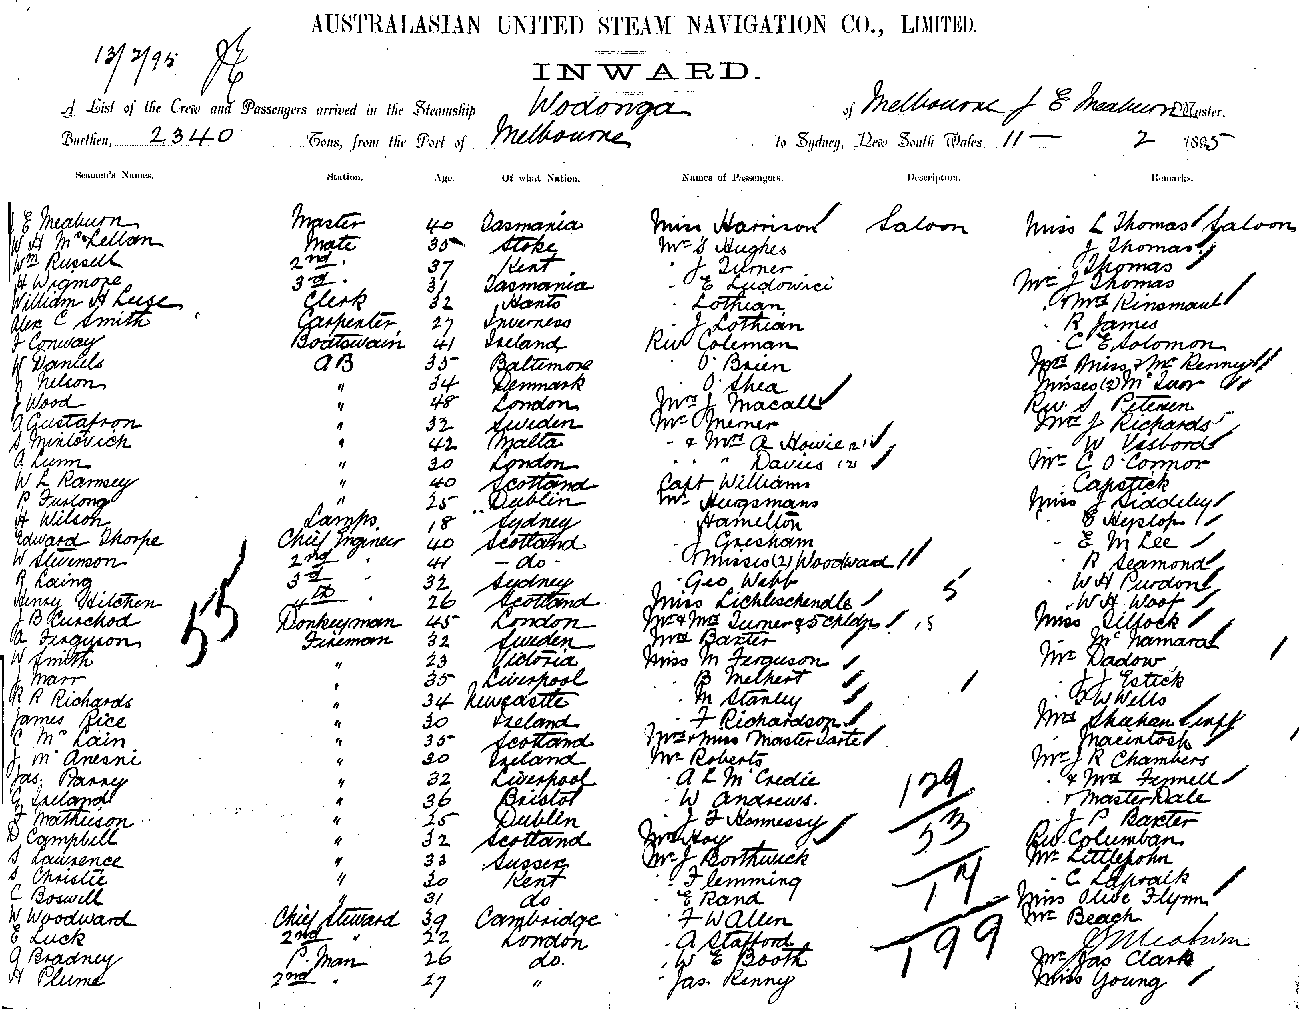 AUSTRALASIAN UNITED STEAM NAVIGATION CO., LIMITED.
13/2/95
INWARD.
A List of the Crew and Passengers arrived in the Steamship Wodonga of Melbourne J E Meaburn Master.
Burthen, 2340 Tons, from the Port of Melbourne to Sydney, New South Wales. 11 — 2 1895
Seamen's Names. Station. Age. Of what Nation. Names of Passengers. Description. Remarks.
J E Meaburn Master 40 Tasmania Miss Harrison Saloon Miss L Thomas Saloon
W H McLellan Mate 35 Stoke Mr S Hughes J Thomas
Wm Russell 2nd " 37 Kent " J Turner " Thomas
H Wigmore 3rd " 31 Tasmania " E Ludowici Mr J Thomas
William H Luse Clerk 32 Hants " Lothian " & Mrs Kinsmaul
Alex C Smith Carpenter 27 Inverness " J Lothian " R James
F Conway Boatswain 41 Ireland Rev Coleman " C E Solomon
W Daniels AB 35 Baltimore " O'Brien Mrs Miss & Mr Renny
N Nelson " 34 Denmark " O'Shea Misses (2) McIvor
E Wood " 48 London Mrs J Macall Rev S Petersen
A Gustafson " 32 Sweden Mr Merner Mrs J Richards
S Mintovich " 42 Malta " & Mrs A Howie (2) " W Visbord
A Lunn " 30 London " " " Davies (2) Mr C O'Connor
W L Ramsey " 40 Scotland Capt Williams " Capstick
P Furlong " 25 Dublin Mr Huysmans Miss J Siddeley
H Wilson Lamps 18 Sydney " Hamelton " E Hyslop
Edward Thorpe Chief Engineer 40 Scotland " J Gresham " E M Lee
W Stevenson 2nd " 41 — do — " Misses (2) Woodward " R Seamond
R Laing 3rd " 32 Sydney " Geo Webb 5 " W H Purdon
Henry Hitchen 4th " 26 Scotland Miss Lichtischendle " W H Woof
J B Rurchod Donkeyman 45 London Mr & Mrs Turner & 5 chldn 15 Miss Tillock
55
A Ferguson Fireman 32 Sweden Mrs Baxter " McNamara
W Smith " 23 Victoria Miss M Ferguson Mr Dadow
J Marr " 35 Liverpool " B Melpert " J J Estick
R R Richards " 34 Newcastle " M Stanley " G W Wells
James Rice " 30 Ireland " F Richardson Mrs Sheehan & inft
C McLain " 35 Scotland Mrs & Miss & Master Tarte " Macintosh
J McAnesni " 30 Ireland Mr Roberts Mr J R Chambers
Jas. Barney " 32 Liverpool " A L McCredie " & Mrs Fennell
G Ireland " 36 Bristol " W Andrews. 129 " & Master Dale
F Mathieson " 25 Dublin " J F Hennessy 53 " J P Baxter
D Campbell " 32 Scotland Mrs Hoy Rev Columban
S Lawrence " 33 Sussex Mr J Borthwick Mr Littlejohn
S Christie " 30 Kent " Flemming 17 " C Lapraik
C Boswell " 31 do " E Rand Miss Olive Flynn
W Woodward Chief Steward 39 Cambridge " F W Allen Mr Beach
E Luck 2nd " 22 London " A Stafford 199 J E Meaburn
G Bradney P. Man 26 do. " W E Booth Mr Jas Clark
H Plume 2nd " 27 " " Jas. Kenny Miss Young